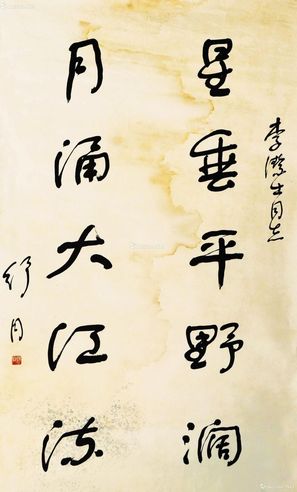 李 同志
星垂平野濶
月涌大江流
舒同